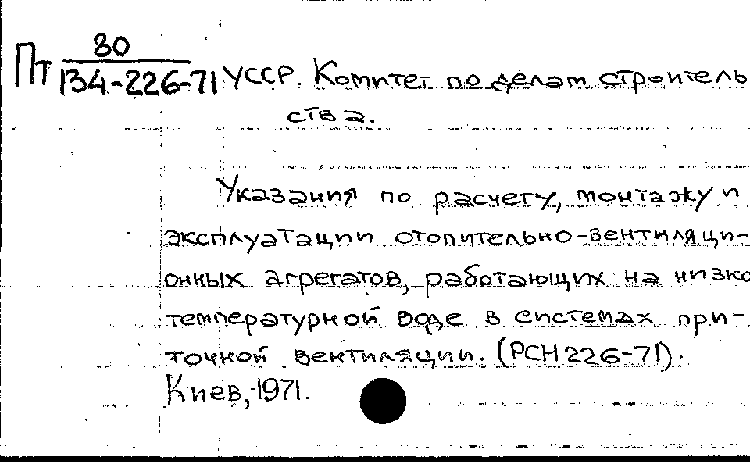 Пт 80
134-226-71 УССР. Комитет по делам строитель
ства.
Указания по расчету, монтажу и
эксплуатации отопительно-вентиляци-
онных агрегатов, работающих на низко
температурной воде в системах при-
точной вентиляции. (РСН 226-71).
Киев, 1971.